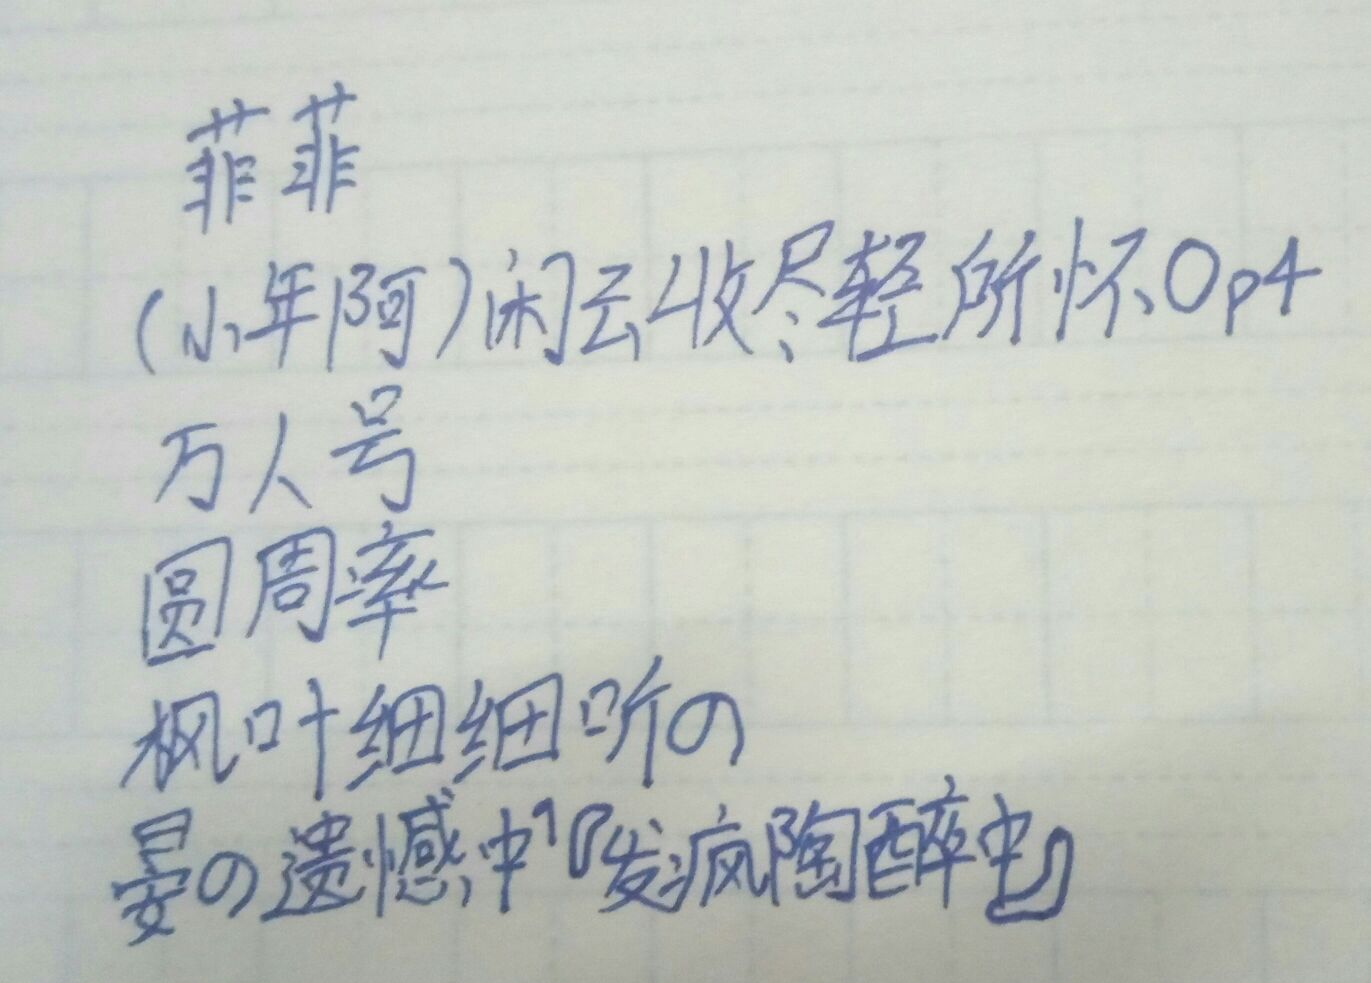 菲菲
(小年阿)闲云收尽轻所怀Op4
万人号
圆周率
枫叶细细听の
晏の遗憾中'『发疯陶醉中』